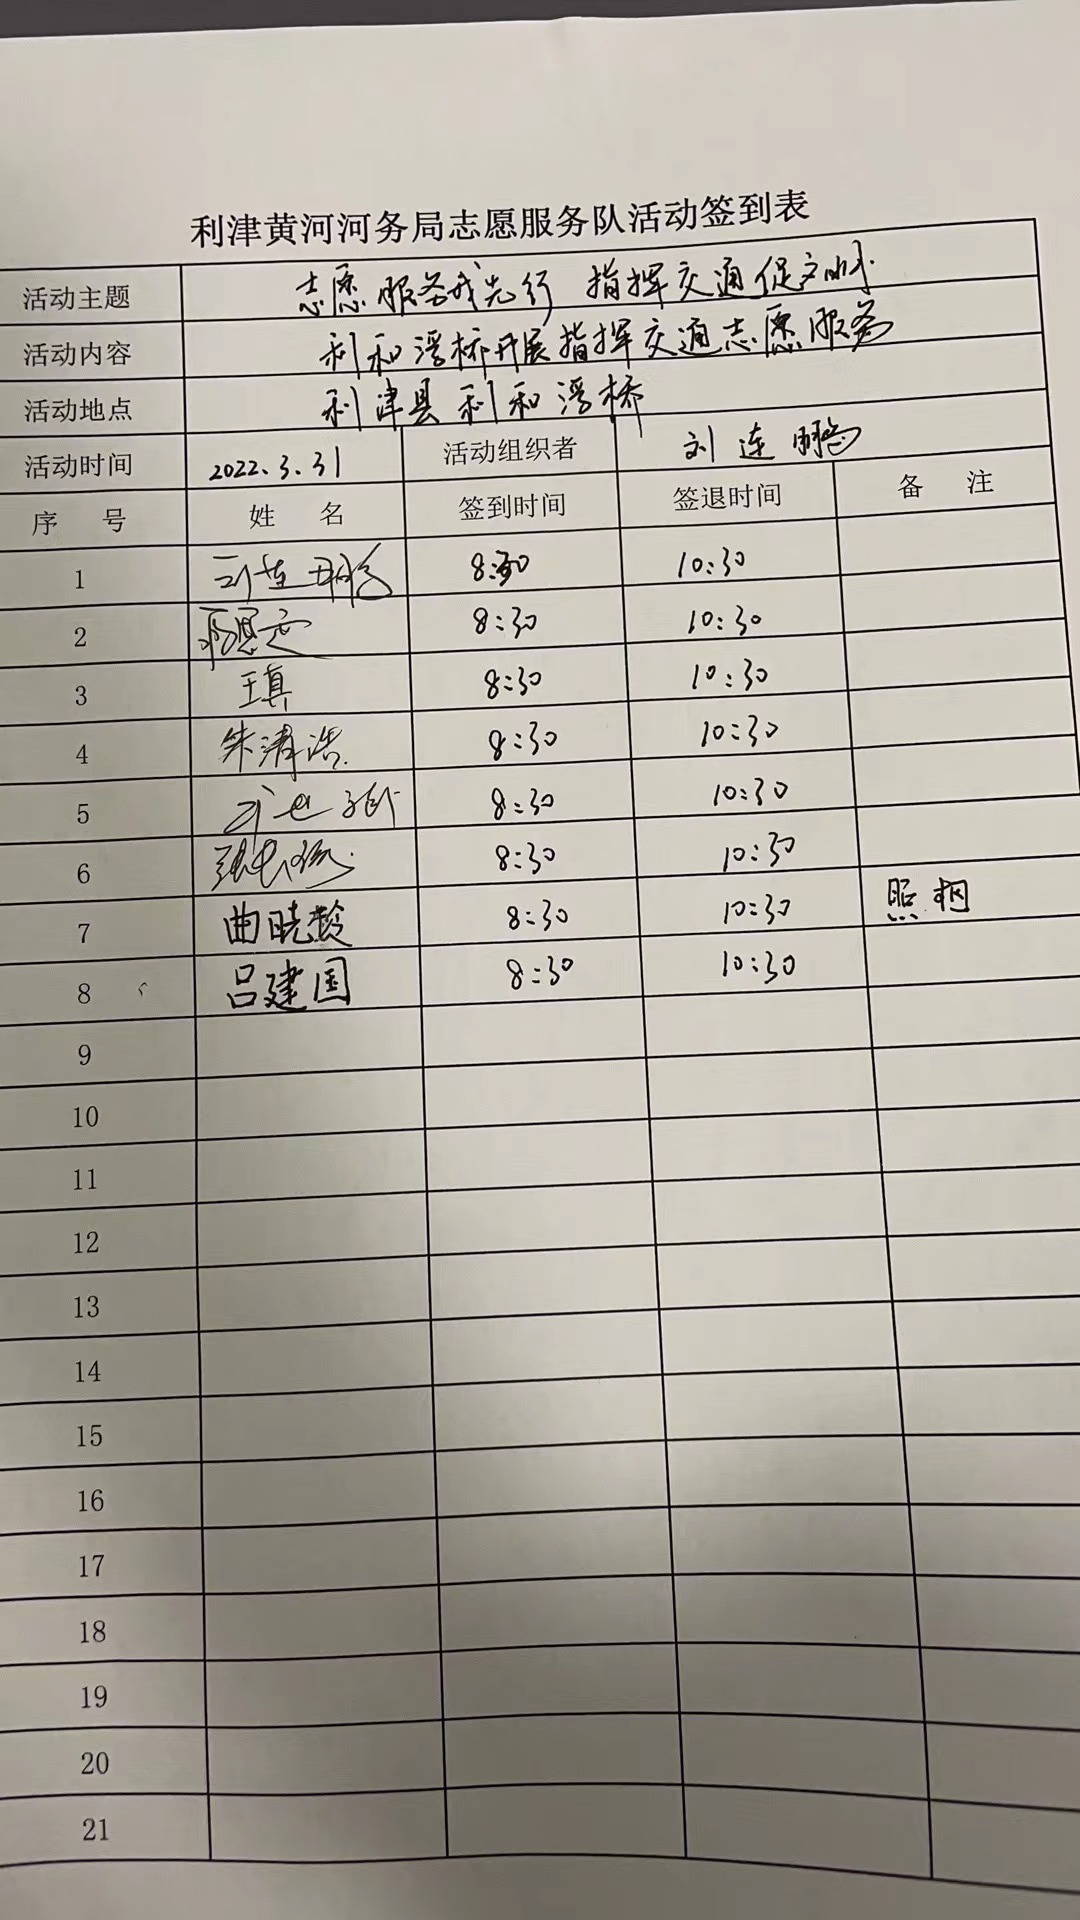 利津黄河河务局志愿服务队活动签到表
活动主题 志愿服务我先行 指挥交通促文明
活动内容 利和浮桥开展指挥交通志愿服务
活动地点 利津县利和浮桥
活动时间 2022.3.31 活动组织者 刘连鹏
序 号 姓 名 签到时间 签退时间 备 注
1 刘连鹏 8:30 10:30
2 8:30 10:30
3 王真 8:30 10:30
4 朱清浩 8:30 10:30
5 8:30 10:30
6 8:30 10:30
7 曲晓龄 8:30 10:30 照相
8 吕建国 8:30 10:30
9
10
11
12
13
14
15
16
17
18
19
20
21